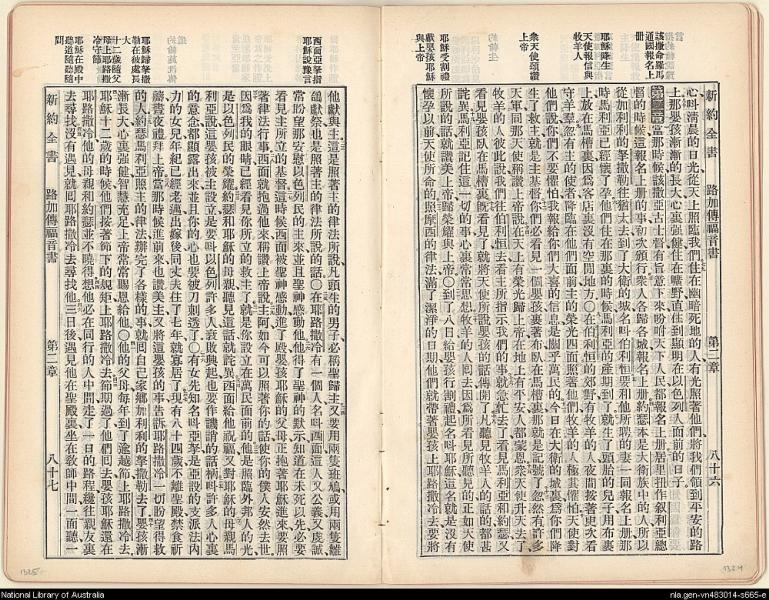 該撒命羅馬
通國報名上
冊
耶穌降生
天使報信與
牧羊人
衆天使頌讚
上帝
約翰生
耶穌受割禮
獻嬰孩耶穌
與上帝
新約全書 路加傳福音書 第二章 八十六
心叫清晨的日光從天上照臨我們住在幽暗死地的人有光照著他們將我們領到平安的路
上那嬰孩漸漸的長大心裏強健住在曠野直住到顯明在以色列人面前的日子
第二章當那時候該撒亞古士督有旨意下來吩咐天下人民都報名上册居里扭作叙利亞總
督的時候這報名上册的事初次頒行衆人各歸各城報名上册約瑟本是大衛族中的人所以
從加利利的拏撒勒往猶太去到了大衛的城名叫伯利恒要和他所聘的妻一同報名上册那
時馬利亞已經懷了孕他們住在那裏的時候馬利亞的產期到了就生了頭胎的兒子用布裹
上放在馬槽裏因爲客店裏沒有空閒地方〇在伯利恒的郊野有牧羊的人夜間按著更次看
守羊羣忽有主的使者降臨在他們面前主的榮光四面照著他們牧羊的人極其懼怕天使對
他們說你們不要懼怕我報給你們大喜的信息是關乎萬民的今日在大衛的城裏爲你們降
生了救主就是主基督你們必看見一個嬰孩裹著布臥在馬槽裏那就是記號了忽然有許多
天軍同那天使稱讚上帝說在天上有榮光歸上帝在地上有平安人都蒙恩衆天使升天去了
牧羊的人彼此說我們往伯利恒去看主所指示我們的事就急忙去了看見馬利亞和約瑟又
看見嬰孩臥在馬槽裏既看見了就將天使所說嬰孩的話傳開了凡聽見牧羊人的話的都甚
詫異馬利亞記住這一切的事心裏常常思想牧羊的人回去因爲所看見所聽見的正如天使
所說的話就讚美上帝歸榮耀與上帝〇到了八日給嬰孩行割禮起名叫耶穌這名就是沒有
懷孕以前天使所命的照摩西的律法滿了潔淨的日期他們就帶著嬰孩上耶路撒冷去要將
西面亞拏指
耶穌說豫言
耶穌歸拏撒
勒在彼處長
大
十二歲隨父
母上耶路撒
冷守節
耶穌在殿中
聽道隨聽隨
問
他獻與主這是照著主的律法所說凡頭生的男子必稱聖歸主又要用兩隻班鳩或用兩隻雛
鴿獻祭也是照著主的律法所說的話〇在耶路撒冷有一個人名叫西面這人又公義又虔誠
常盼望那安慰以色列民的主來並且聖神感動他他得了聖神的默示知道在未死以先必要
看見主所立的基督這時候西面被聖神感動進了殿嬰孩耶穌的父母正抱著耶穌進來要照
著律法行事西面就抱過他來稱讚上帝說主阿如今可以照著你的話使你的僕人安然去世
因爲我的眼睛已經看見你所立的救主了就是你設立在萬民面前的他是照臨外邦人的光
是以色列民的榮耀約瑟和耶穌的母親聽見這話就詫異西面給他祝福又對耶穌的母親馬
利亞說這嬰孩被主設立是要叫以色列許多人衰敗興起也要作譏誚的話柄叫許多人心裏
的意念都顯露出來並且你的心也要被刀刺透了〇有女先知名叫亞拏是亞設的支派法內
力的女兒年紀已經老邁出嫁後同丈夫住了七年就寡居了現有八十四歲不離聖殿禁食祈
禱晝夜禮拜上帝當那時候進前來也讚美主又將這嬰孩的事告訴耶路撒冷一切盼望得救
的人約瑟馬利亞照主的律法辦完了各樣的事就回自己家鄉加利利的拏撒勒去了嬰孩漸
漸長大心裏強健智慧充足上帝常常賜恩給他〇他的父母每年到了逾越節上耶路撒冷去
耶穌十二歲的時候他們按著節下的規矩上耶路撒冷去節期過了他們回去嬰孩耶穌還在
耶路撒冷他的母親和約瑟並不曉得想他必在同行的人中間走了一日的路程纔往親友裏
去尋找沒有遇見就回耶路撒冷去尋找他三日後遇見他在聖殿裏坐在教師中間一面聽一
新約全書 路加傳福音書 第二章 八十七
1325
1324
National Library of Australia
nla.gen-vn483014-s665-e